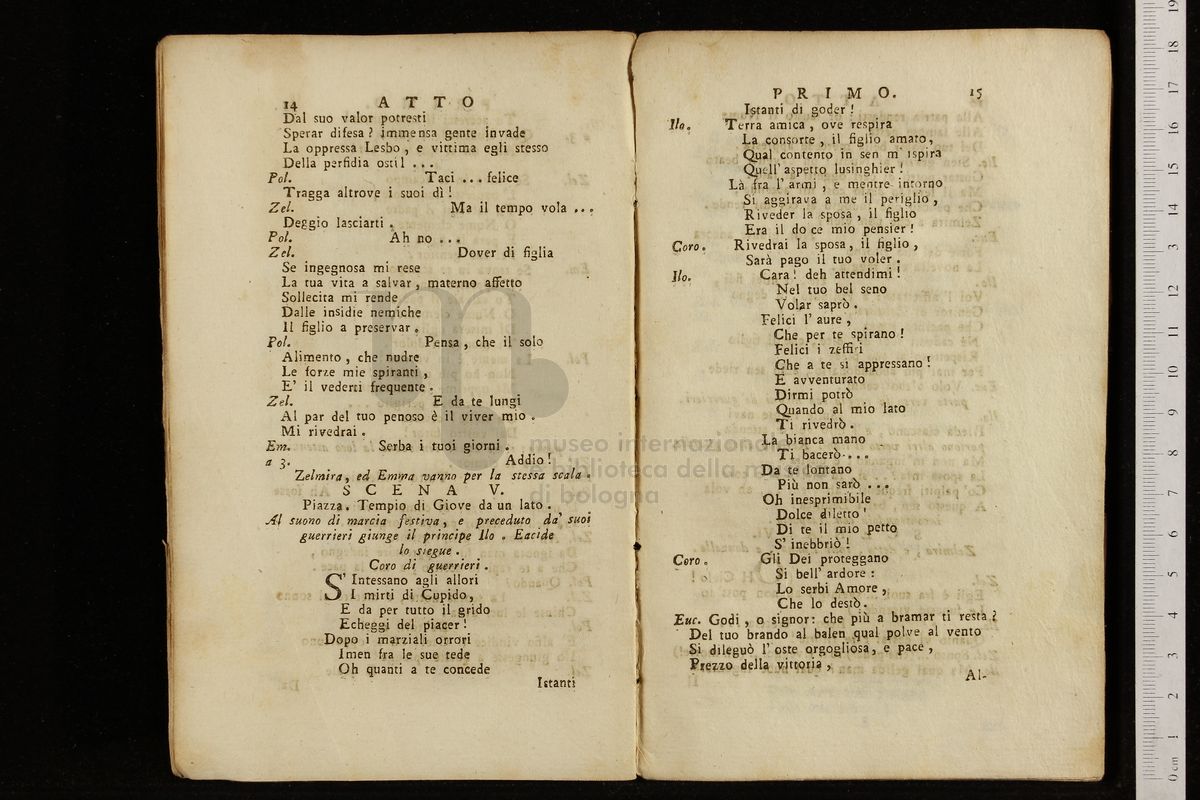 14 ATTO
Dal suo valor potresti
Sperar difesa? immensa gente invade
La oppressa Lesbo, e vittima egli stesso
Della perfidia ostil ...
Pol. Taci ... felice
Tragga altrove i suoi dì!
Zel. Ma il tempo vola ...
Deggio lasciarti.
Pol. Ah no ...
Zel. Dover di figlia
Se ingegnosa mi rese
La tua vita a salvar, materno affetto
Sollecita mi rende
Dalle insidie nemiche
Il figlio a preservar.
Pol. Pensa, che il solo
Alimento, che nudre
Le forze mie spiranti,
E' il vederti frequente.
Zel. E da te lungi
Al par del tuo penoso è il viver mio.
Mi rivedrai.
Em. Serba i tuoi giorni.
a 3. Addio!
Zelmira, ed Emma vanno per la stessa scala.
SCENA V.
Piazza. Tempio di Giove da un lato.
Al suono di marcia festiva, e preceduto da' suoi
guerrieri giunge il principe Ilo. Eacide
lo siegue.
Coro di guerrieri.
S' Intessano agli allori
I mirti di Cupido,
E da per tutto il grido
Echeggi del piacer!
Dopo i marziali orrori
Imen fra le sue tede
Oh quanti a te concede
Istanti
PRIMO. 15
Istanti di goder!
Ilo. Terra amica, ove respira
La consorte, il figlio amato,
Qual contento in sen m' ispira
Quell' aspetto lusinghier!
Là fra l' armi, e mentre intorno
Si aggirava a me il periglio,
Riveder la sposa, il figlio
Era il do ce mio pensier!
Coro. Rivedrai la sposa, il figlio,
Sarà pago il tuo voler.
Ilo. Cara! deh attendimi!
Nel tuo bel seno
Volar saprò.
Felici l' aure,
Che per te spirano!
Felici i zeffiri
Che a te si appressano!
E avventurato
Dirmi potrò
Quando al mio lato
Ti rivedrò.
La bianca mano
Ti bacerò....
Da te lontano
Più non sarò ...
Oh inesprimibile
Dolce diletto!
Di te il mio petto
S' inebbriò!
Coro. Gli Dei proteggano
Si bell' ardore:
Lo serbi Amore,
Che lo destò.
Euc. Godi, o signor: che più a bramar ti resta?
Del tuo brando al balen qual polve al vento
Si dileguò l' oste orgogliosa, e pace,
Prezzo della vittoria,
Al-
museo internazionale
biblioteca della m
di bologna
0 cm 1 2 3 4 5 6 7 8 9 10 11 12 13 14 15 16 17 18 19